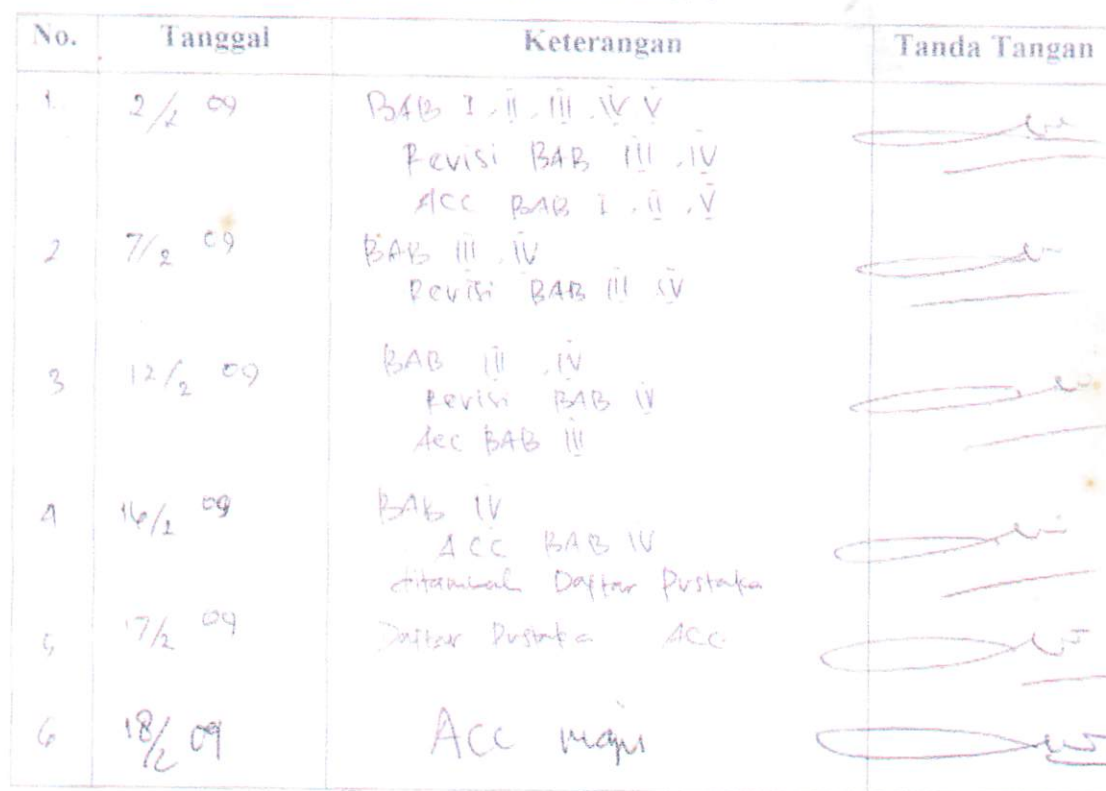 No. Tanggal Keterangan Tanda Tangan
1. 2/2 09 BAB I, II, III, IV V
Revisi BAB III, IV
ACC BAB I, II, V
2 7/2 09 BAB III, IV
Revisi BAB III IV
3 12/2 09 BAB III, IV
Revisi BAB IV
Acc BAB III
4 16/2 09 BAB IV
ACC BAB IV
ditambah Daftar Pustaka
5 17/2 09 Daftar Pustaka ACC
6 18/2 09 ACC maju